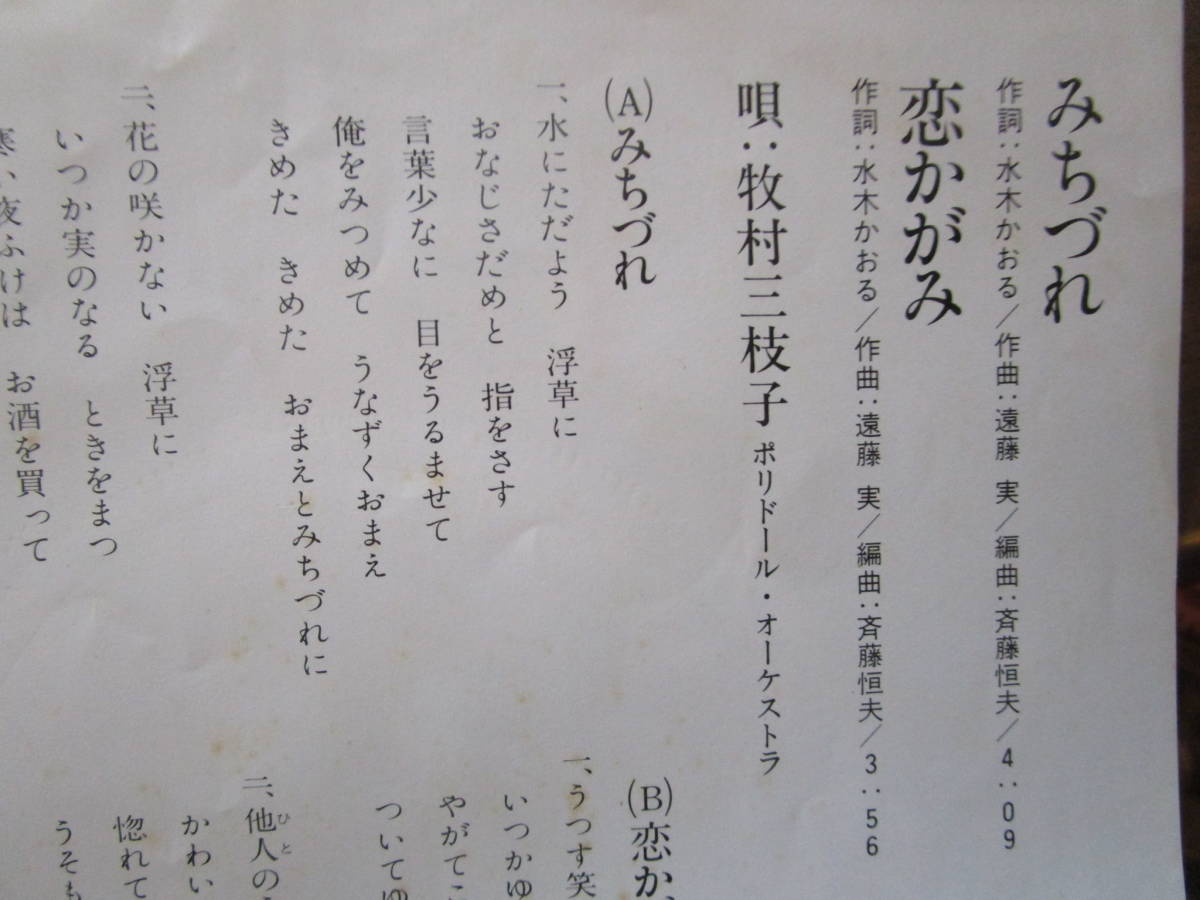 みちづれ
作詞：水木かおる／作曲：遠藤 実／編曲：斉藤恒夫／4：09
恋かがみ
作詞：水木かおる／作曲：遠藤 実／編曲：斉藤恒夫／3：56
唄：牧村三枝子 ポリドール・オーケストラ
(A)みちづれ
一、水にただよう　浮草に
おなじさだめと　指をさす
言葉少なに　目をうるませて
俺をみつめて　うなずくおまえ
きめた　きめた　おまえとみちづれに
二、花の咲かない　浮草に
いつか実のなる　ときをまつ
寒い夜ふけは　お酒を買って
(B)恋か
一、うつす笑
いつかゆ
やがてこ
ついてゆ
二、他人の
ひと
かわい
惚れて
うそも